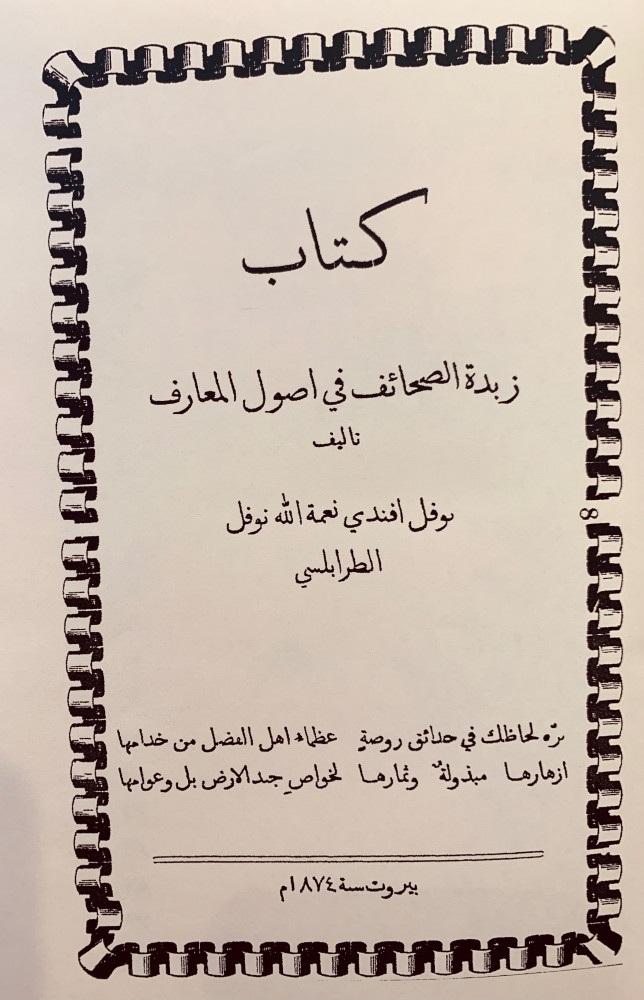 كتاب
زبدة الصحائف في اصول المعارف
تاليف
نوفل افندي نعمة الله نوفل
الطرابلسي
نزّه لحاظك في حدائق روضةٍ عظماء اهل الفضل من خدامها
ازهارها مبذولةٌ وثمارها لخواصِ جند الارض بل وعوامها
بيروت سنة ١٨٧٤م